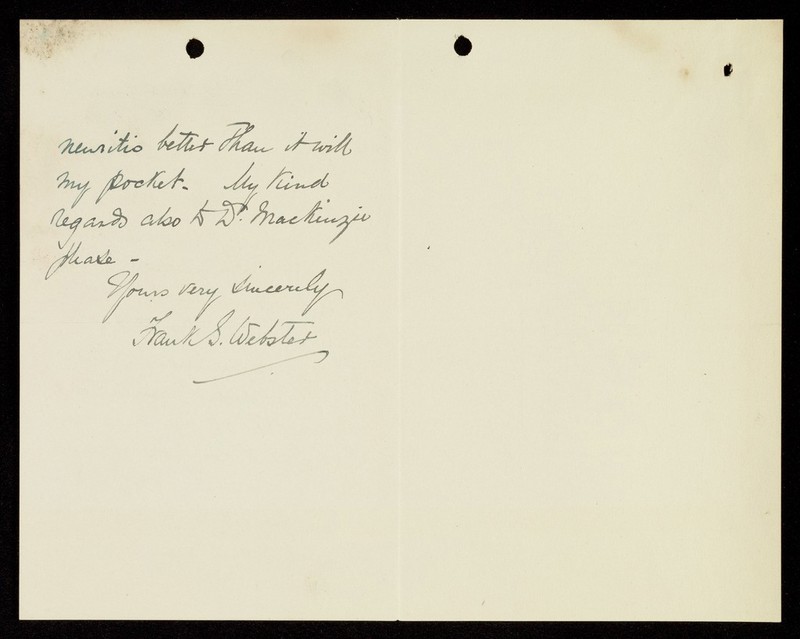 neuritis better than it will
my pocket. My kind
regards also to Dr. Mackenzie
please -
Yours very sincerely
Frank G. Webster